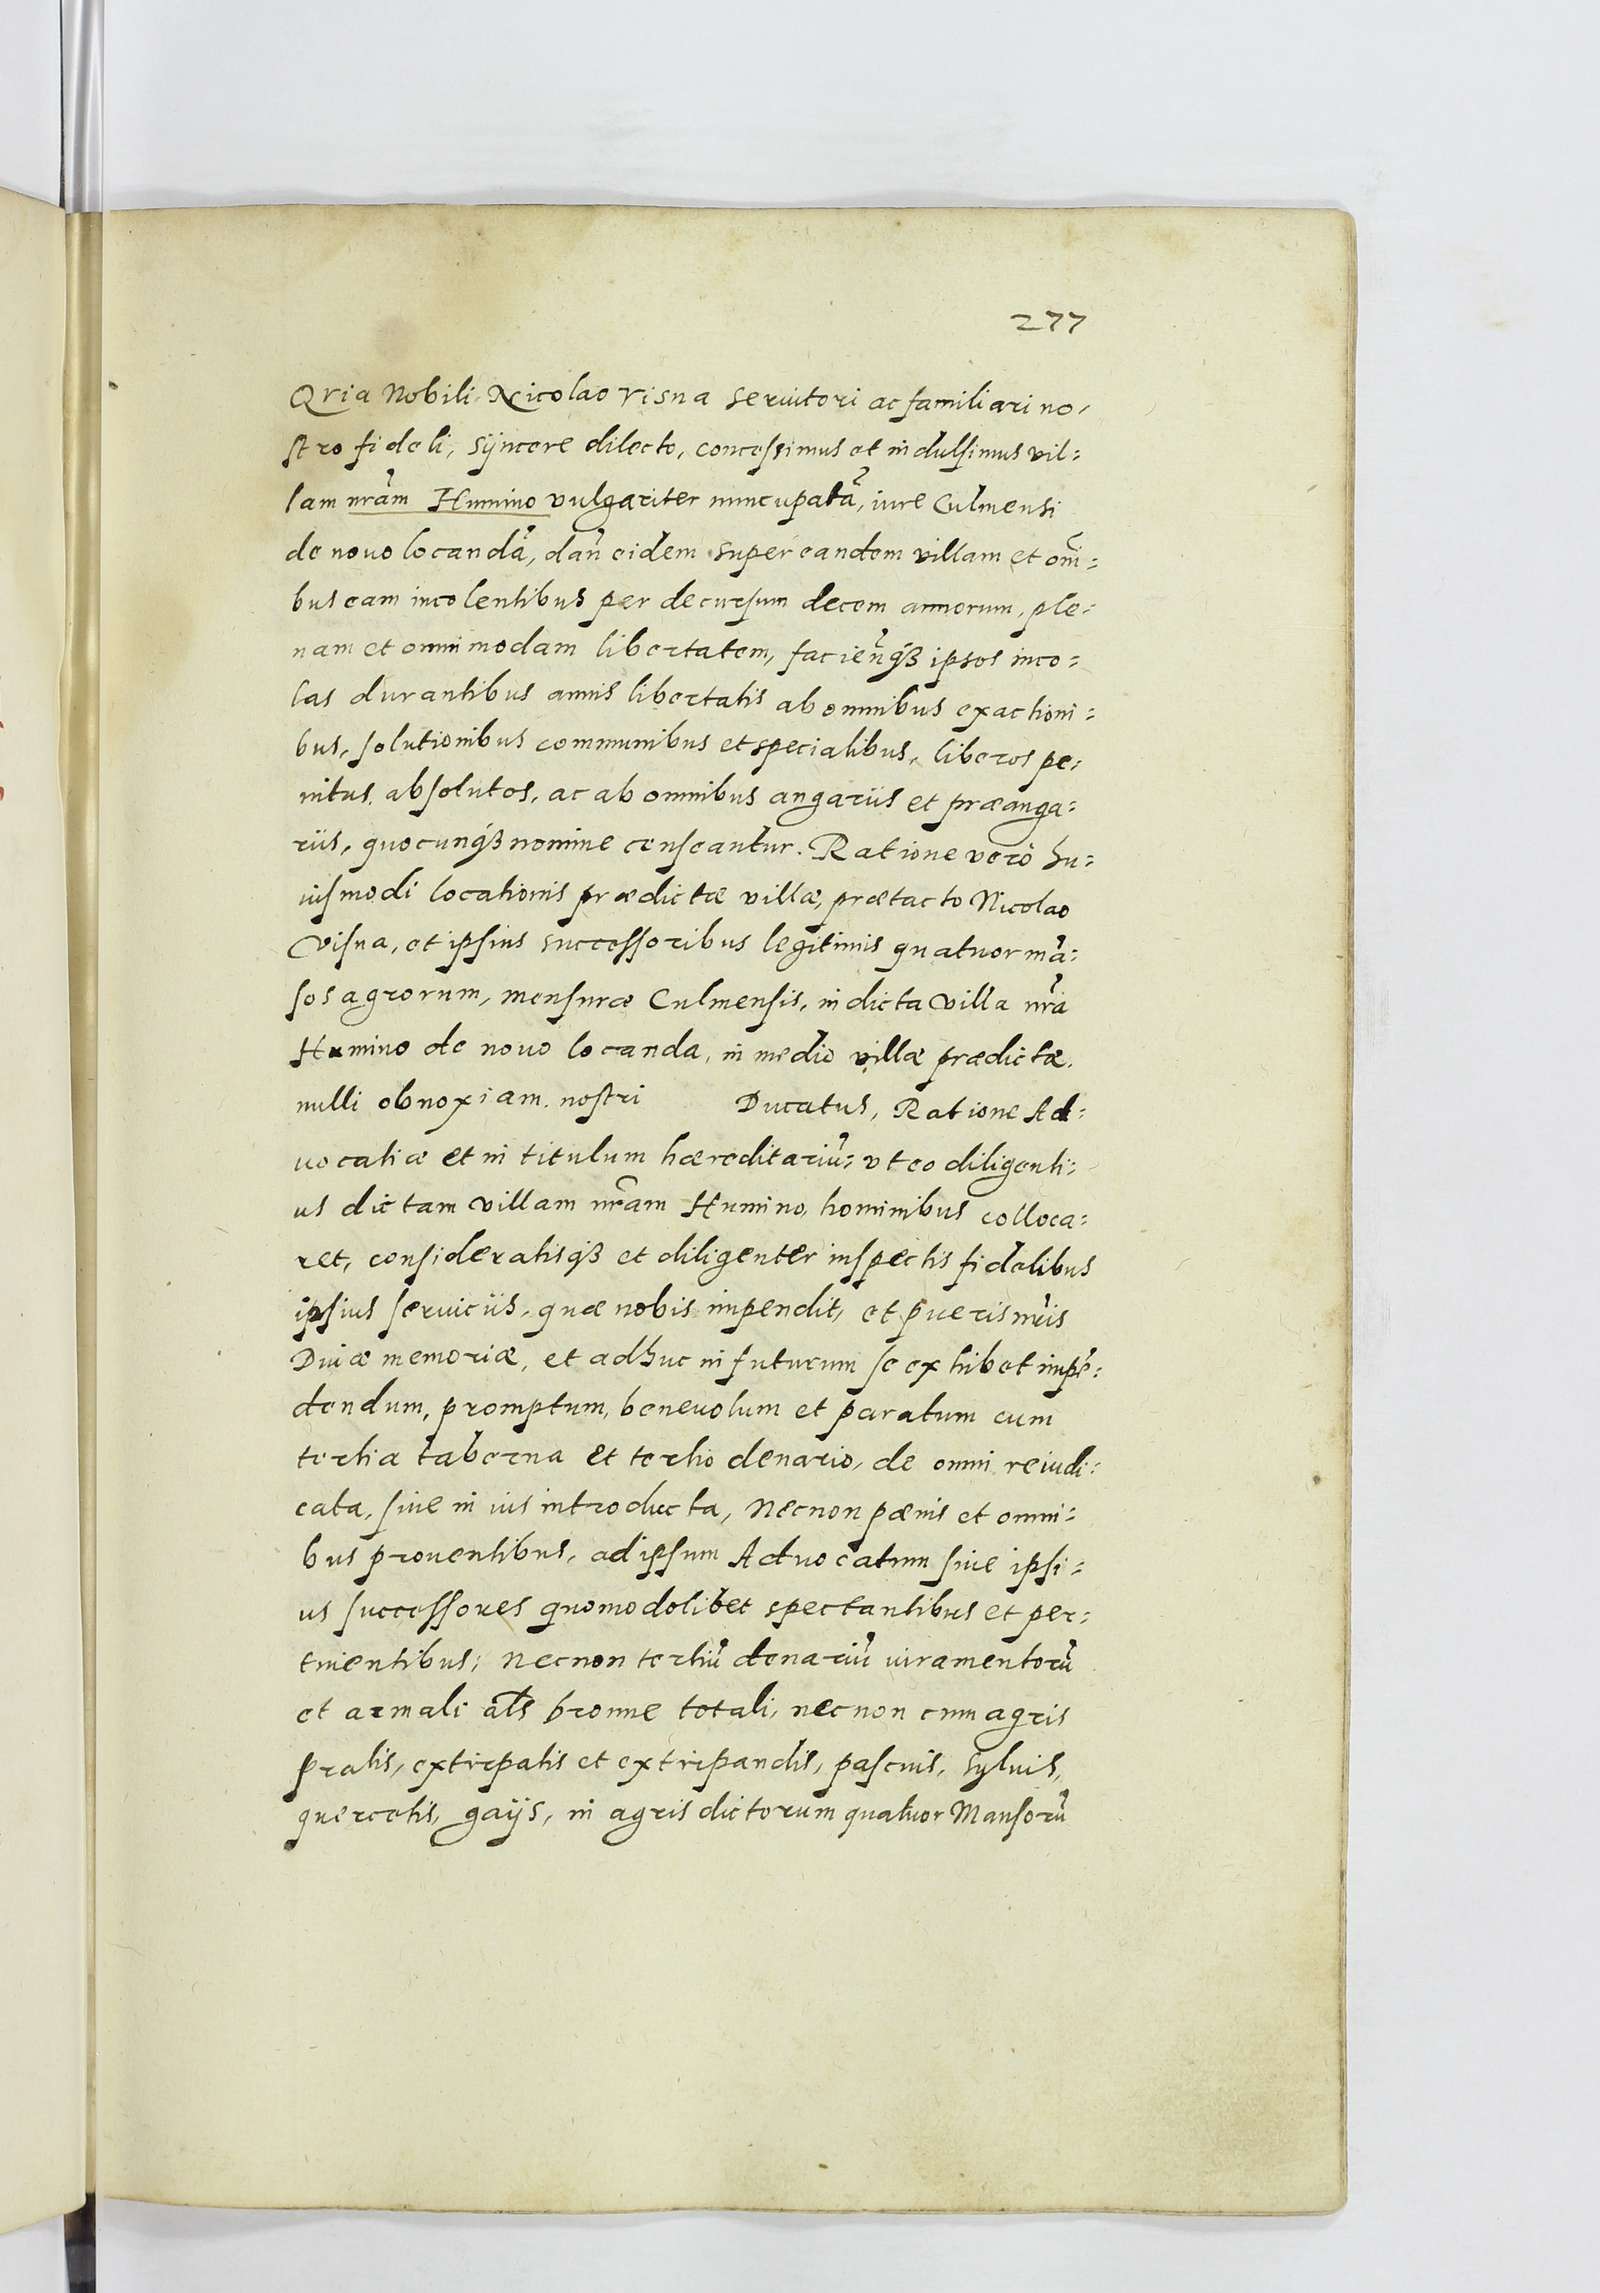 277
Qria Nobili Nicolao Visna seruitori ac familiari no,
stro fideli, syncere dilecto, concessimus et indulsimus vil=
lam nrãm Humino vulgariter nuncupatã, iure Culmensi
de nouo locandã, dañ eidem super eandem villam et oĩni=
bus eam incolentibus per decursum decem annorum, ple=
nam et omnimodam libertatem, facieñqȝ ipsos inco=
las durantibus annis libertatis ab omnibus exactioni=
bus, solutionibus communibus et specialibus, liberos pe,
nitus, absolutos, ac ab omnibus angariis et præanga=
riis, quocunqȝ nomine censeantur. Ratione verò hu=
iusmodi locationis prædictæ villæ, prætacto Nicolao
Visna, et ipsius successoribus legitimis quatuor mã=
sos agrorum, mensuræ Culmensis, in dicta villa nrã
Humino de nouo locanda, in medio villæ prædictæ.
nulli obnoxiam. nostri Ducatus, Ratione Ad=
uocatiæ et in titulum hæreditariũ: vt eo diligenti=
us dictam villam nrãm Humino, hominibus colloca=
ret, consideratisqȝ et diligenter inspectis fidelibus
ipsius seruiciis, quæ nobis impendit, et pueris nr̃is
Diuæ memoriæ, et adhuc in futurum se exhibet impẽ=
dendum, promptum, beneuolum et paratum cum
tertia taberna et tertio denario, de omni re iudi=
cata, siue in ius introducta, Necnon pænis et omni=
bus prouentibus, ad ipsum Aduocatum siue ipsi=
us successores quomodolibet spectantibus et per=
tinentibus; Necnon tertiũ denariũ iuramentorũ
et armali al̃s bronne totali, necnon cum agris
pratis, extirpatis et extirpandis, pascuis, syluis,
quercetis, gaijs, in agris dictorum quatuor Mansorũ